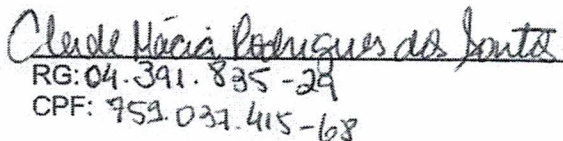 Cleide Mácia Rodrigues dos Santos
RG: 04.391.835-29
CPF: 759.037.415-68